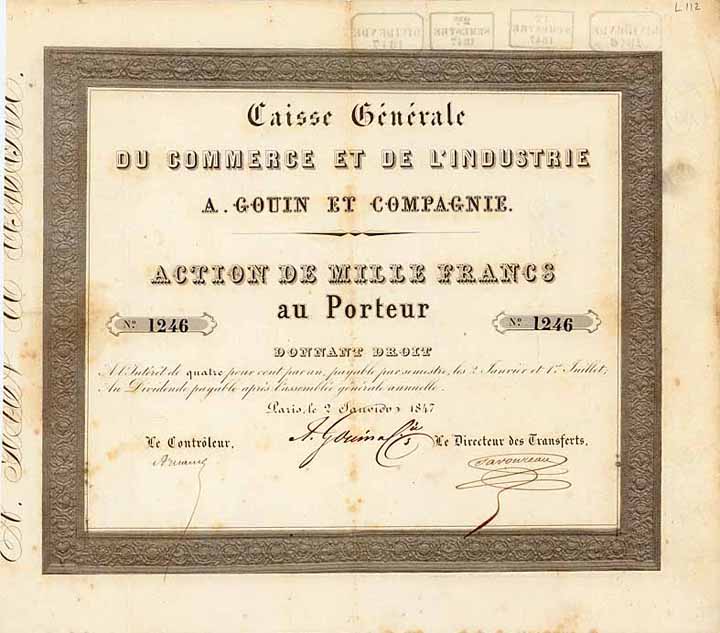 L 112
Caisse Générale
DU COMMERCE ET DE L'INDUSTRIE
A. GOUIN ET COMPAGNIE.
ACTION DE MILLE FRANCS
au Porteur
No. 1246
No. 1246
DONNANT DROIT
A l'Intérêt de quatre pour cent par an, payable par semestre, les 2 Janvier et 1er Juillet;
Au Dividende payable après l'assemblée générale annuelle.
Paris, le 2 Janvier 1847
Le Contrôleur,
A. Gouin & Cie
Le Directeur des Transferts.
Savoureau